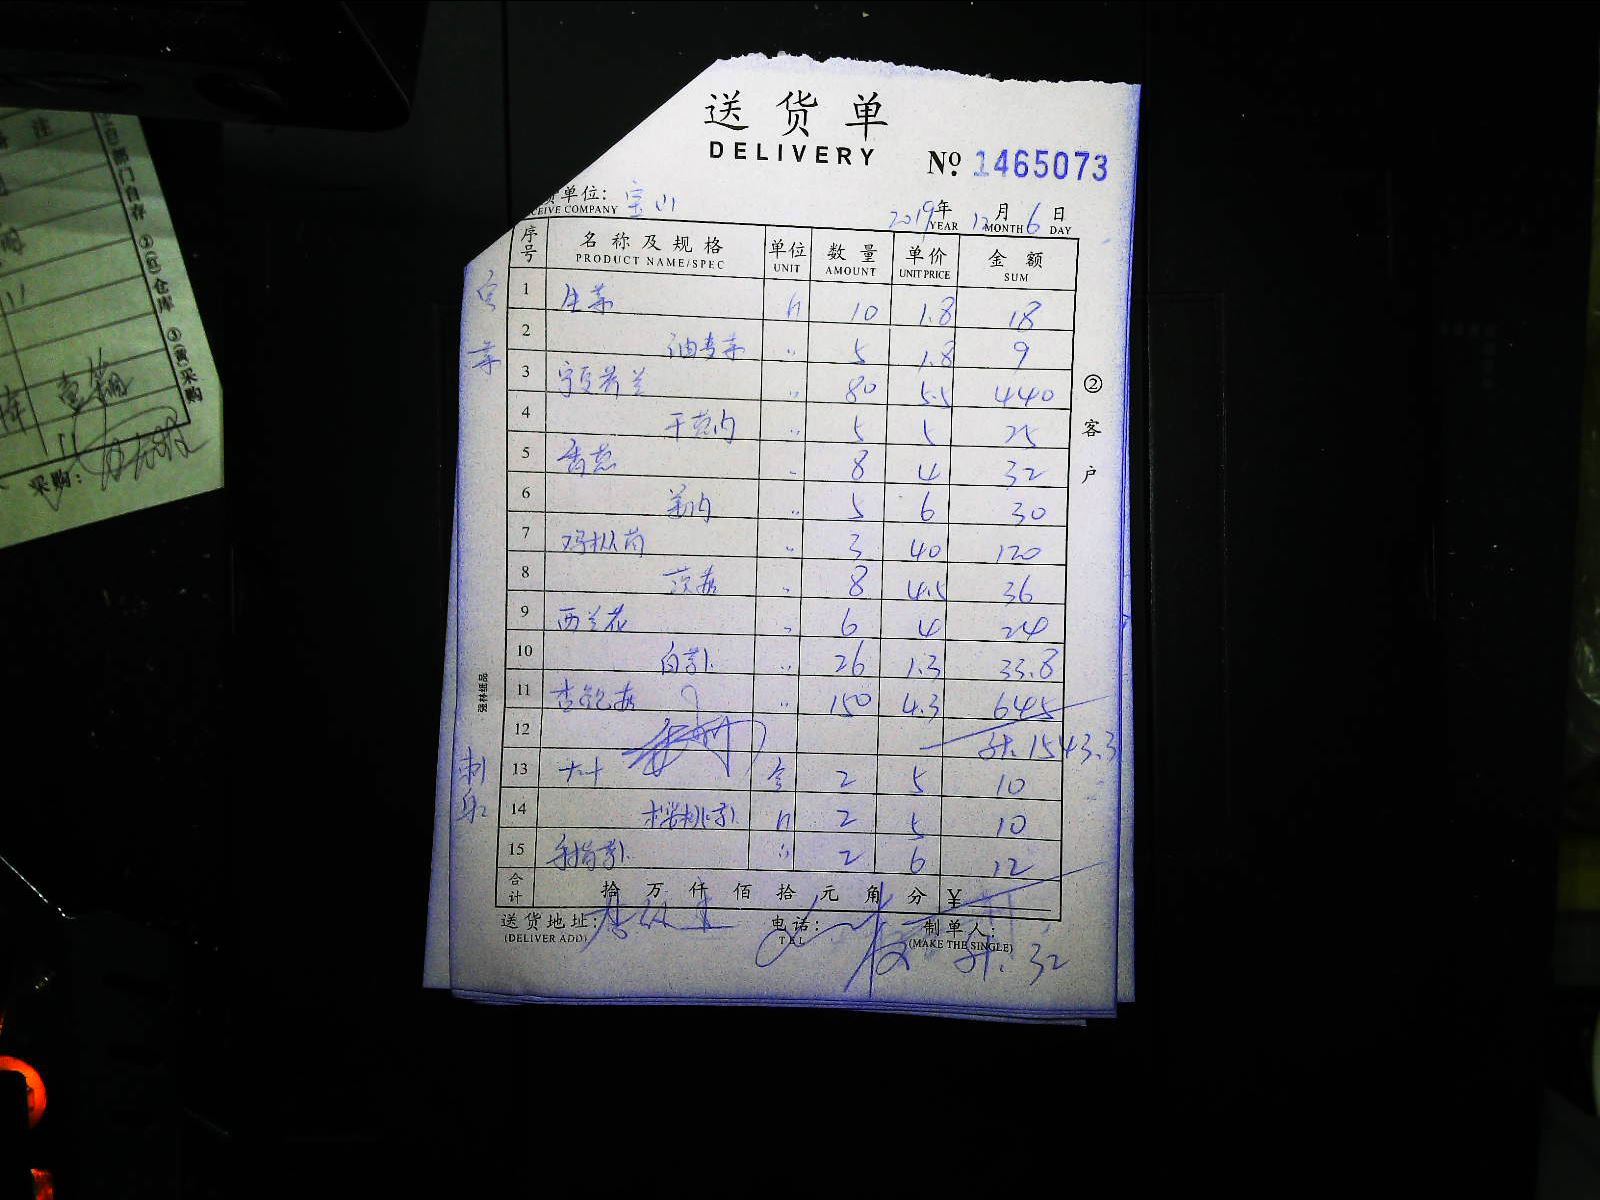 送货单
DELIVERY
No. 1465073
货单位: 宝山
CEIVE COMPANY
2019年 12月 6日
YEAR MONTH DAY
序号 名称及规格 单位 数量 单价 金额
PRODUCT NAME/SPEC UNIT AMOUNT UNIT PRICE SUM
1 生菜 斤 10 1.8 18
2 油麦菜 〃 5 1.8 9
3 宁夏芥兰 〃 80 5.5 440
4 干葱肉 〃 5 5 25
5 香葱 〃 8 4 32
6 姜肉 〃 5 6 30
7 鸡枞菌 〃 3 40 120
8 茨菇 〃 8 4.5 36
9 西兰花 〃 6 4 24
10 白萝卜 〃 26 1.3 33.8
11 杏鲍菇 〃 150 4.3 645
12 计. 1543.3
13 大叶 盒 2 5 10
14 樱桃萝卜 斤 2 5 10
15 手指萝卜 〃 2 6 12
合计 拾 万 仟 佰 拾 元 角 分 ¥
送货地址: 电话: 制单人:
(DELIVER ADD) TEL (MAKE THE SINGLE)
计. 32
②客户
强林纸品
刺身
注
部门自存 ②(红)仓库 ③(黄)采购
采购: